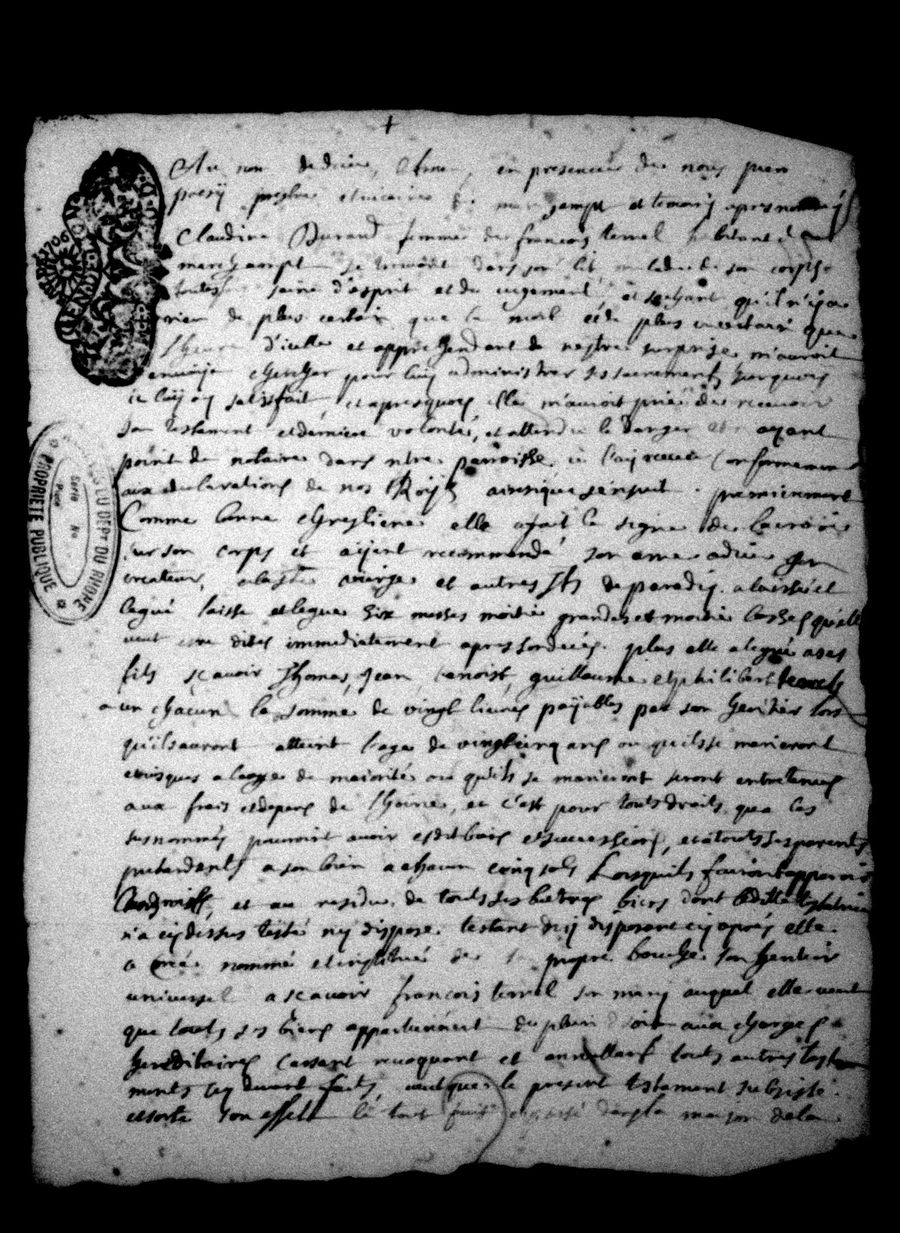 Au nom de dieu, Amen, en presence de nous
presy prestre et vicaire de marsempt et temoins apres nommés
Claudine Durand femme de francois terrel habitant
marchampt se trouvant dans son lit malade de son corps
toutesfois saine d'esprit et de iugement, et sachant qu'il n'y a
rien de plus certain que la mort et de plus incertain que
l'heure d'icelle et apprehendant de nestre surprise m'auroit
envoyé chercher pour luy administrer les sacrements, surquoy
ie luy ay satisfait, et apresquoy elle m'auroit prié de recevoir
son testament et derniere volonté, et attendu le danger et ayant
point de notaire dans ntre parroisse ie l'ay receu conformement
aux declarations de nos Roys ainsique s'ensuit. premierement
Comme bonne chrestiene elle a fait le signe de la croix
sur son corps et ayant recommandé son ame a dieu son
createur, a la ste vierge et autres sts de paradis. a laissé et
legué laisse et legue six messes moitié grandes et moitié basses qu'elle
veut etre dites immediatement apres son deces. plus elle a legué a ses
fils sçavoir Thomas, Jean, benoist, guillaume et philibert terrels
a un chacun la somme de vingt livres payables par son heritier lors
qu'ils auront atteint l'age de vingt cinq ans ou qu'ils se marieront
et iusques a l'age de maiorité ou qu'ils se marieront seront entretenus
aux frais et depens de l'hoirie, et c'est pour touts droits que les
susnommés pouroint avoir esdits biens et succession, et a touts ses parents
pretendants a son bien a chacun cinq sols Lorsquils fairont apparoir
, et au residu de touts ses biens dont laditte testatrice
n'a cy dessus testé ny disposé testant ny disposant cy aprés elle
a creé nommé et institué de sa propre bouche son heritier
universel a scavoir francois terrel son mary auquel elle veut
que touts ses biens appartiennent de plein droit aux charges
hereditaires cassant revoquant et annullant touts autres testa
ments cy devant faits, veut que le present testament subsiste
et sorte son effect le tout fait et passé dans la maison de la
ARCHIVES DU DEPT DU RHONE
PROPRIETE PUBLIQUE
Serie No
Piece